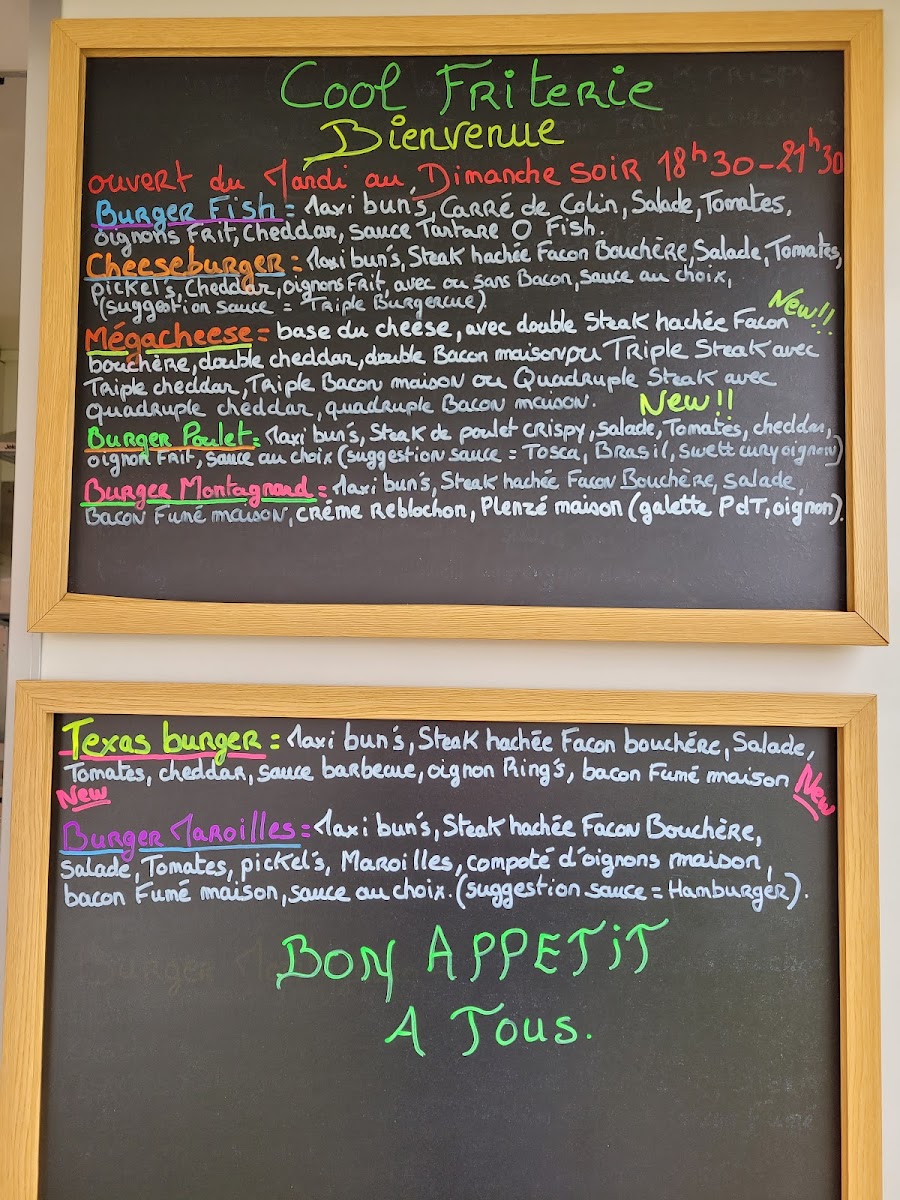 Cool Friterie
Bienvenue
ouvert du Mardi au Dimanche soir 18h30-21h30
Burger Fish = Maxi bun's, Carré de Colin, Salade, Tomates,
oignons Frit, cheddar, sauce Tartare O Fish.
Cheeseburger = Maxi bun's, Steak hachée Facon Bouchère, Salade, Tomates,
pickel's, Cheddar, oignons Frit, avec ou sans Bacon, sauce au choix,
(suggestion sauce = Triple Burgercue)
New!!
Mégacheese = base du cheese, avec double Steak hachée Facon
bouchère, double cheddar, double Bacon maison ou Triple Steak avec
Triple cheddar, Triple Bacon maison ou Quadruple Steak avec
quadruple cheddar, quadruple Bacon maison.
New!!
Burger Poulet = Maxi bun's, Steak de poulet crispy, salade, Tomates, cheddar,
oignon Frit, sauce au choix (suggestion sauce = Tosca, Brasil, swett cury oignon)
Burger Montagnard = Maxi bun's, Steak hachée Facon Bouchère, salade,
Bacon Fumé maison, créme Reblochon, Plenzé maison (galette PdT, oignon).
Texas burger = Maxi bun's, Steak hachée Facon bouchére, Salade,
Tomates, cheddar, sauce barbecue, oignon Ring's, bacon Fumé maison New
New
Burger Maroilles = Maxi bun's, Steak hachée Facon Bouchère,
Salade, Tomates, pickel's, Maroilles, compoté d'oignons maison,
bacon Fumé maison, sauce au choix. (suggestion sauce = Hamburger).
BON APPETIT
A Tous.